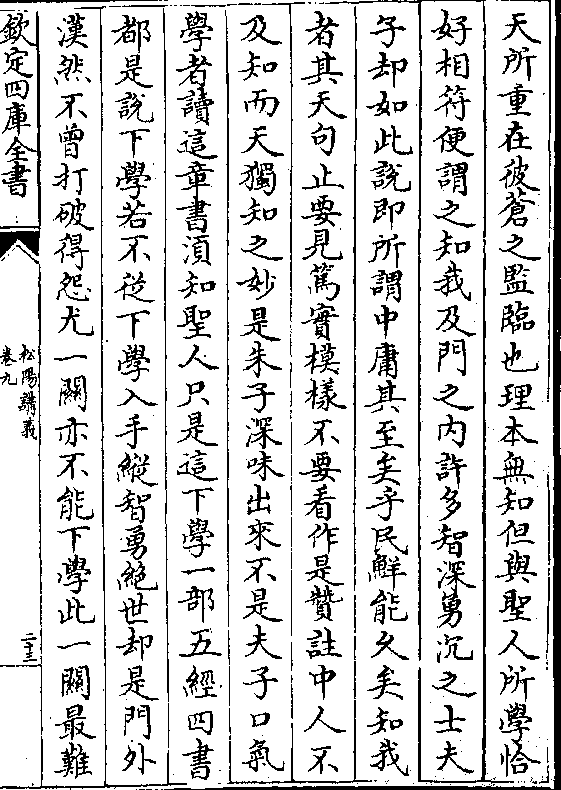 天所重在彼蒼之監臨也理本無知但與聖人所學恰
好相符便謂之知我及門之内許多智深勇沉之士夫
子却如此説即所謂中庸其至矣乎民鮮能久矣知我
者其天句止要見篤實模樣不要看作是贊註中人不
及知而天獨知之妙是朱子深味出來不是夫子口氣
學者讀這章書須知聖人只是這下學一部五經四書
都是説下學若不從下學入手縱智勇絶世却是門外
漢然不曾打破得怨尤一關亦不能下學此一關最難
欽定四庫全書
松陽講義
卷九
二十三